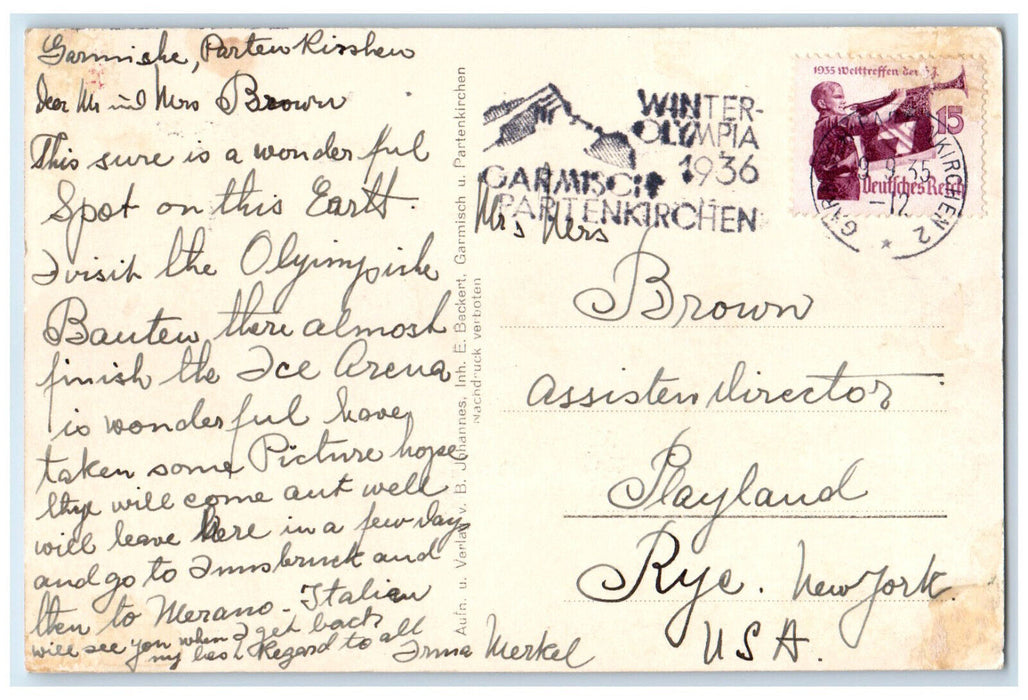 Garmishe, Partenkirshen
Dear Mr und Mrs Brown
This sure is a wonderful
Spot on this Earth.
I visit the Olyimpishe
Bauten there almost
finish the Ice Arena
is wonderful have
taken some Picture hope
thye will come aut well
will leave here in a few days
and go to Innsbruck and
then to Merano - Italien
will see you when I get back
my best Regard to all
Irma Merkel
Aufn. u. Verlag v. B. Johannes, Inh. E. Backert, Garmisch u. Partenkirchen
Nachdruck verboten
WINTER-
OLYMPIA
1936
GARMISCH
PARTENKIRCHEN
1935 Welttreffen der HJ.
15
Deutsches Reich
GARMISCH-PARTENKIRCHEN 2
9.9.35
-12
Mrs Mrs
Brown
assisten director
Playland
Rye. New York.
USA.